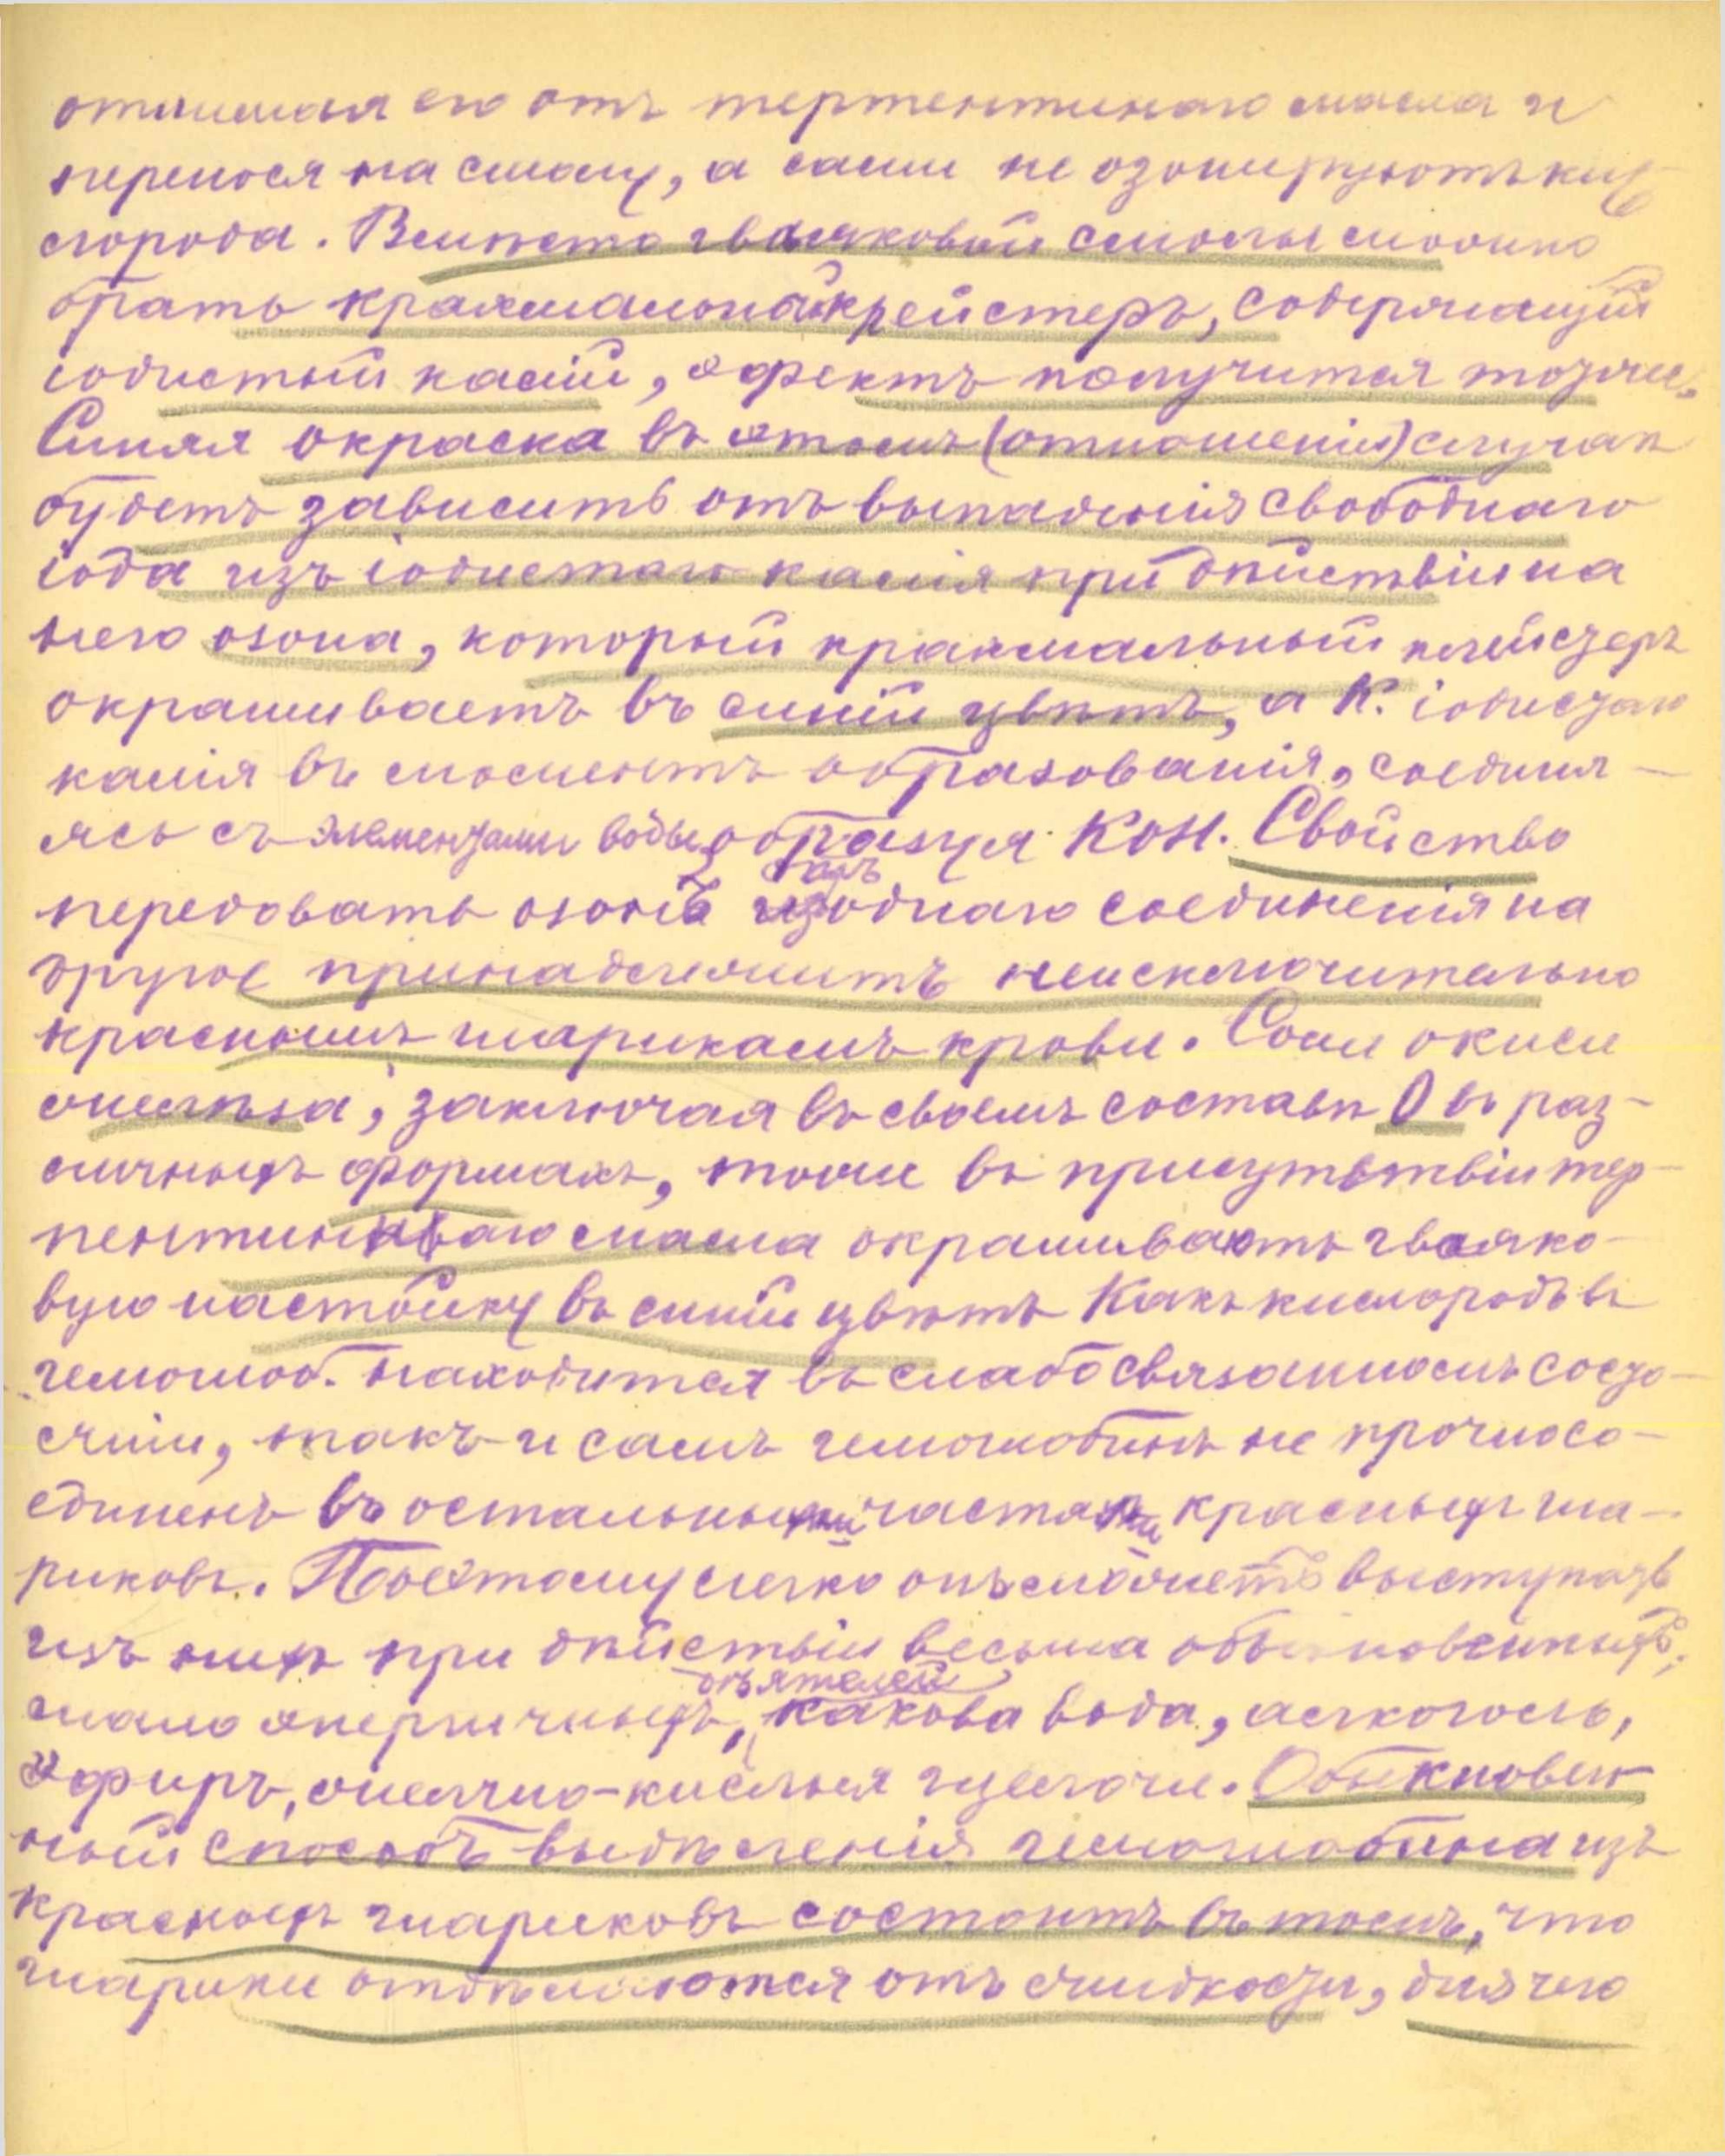 отнимая его отъ терпентинаго масла и
перенося на смолу, а сами не озонируютъ кис
лорода. Вмѣсто гваяковой смолы можно
брать крахмальный клейстеръ, содержащій
іодистый калій, эфектъ получится тотже.
Синяя окраска въ этомъ (отношеніи) случаѣ
будетъ зависить отъ выпаденія свободнаго
іода изъ іодистаго калія при дѣйствіи на
него озона, который крахмальный клейстеръ
окрашиваетъ въ синій цвѣтъ, а К. іодистаго
калія въ моментъ образованія, соединя-
ясь съ элементами воды образуя КОН. Свойство
передовать озонъ изъ однаго соединенія на
другое принадлежитъ неисключительно
краснымъ шарикамъ крови. Соли окиси
желѣза, заключая въ своемъ составѣ О въ раз-
личныхъ формахъ, тоже въ присутствіи тер-
пентиннаго масла окрашиваютъ гваяко-
вую настойку въ синій цвѣтъ Какъ кислородъ въ
гемоглоб. находится въ слабо связанномъ состо-
яніи, такъ и самъ гемоглобинъ не прочно со-
единенъ въ остальными частями красныхъ ша-
риковъ. Поэтому легко онъ можетъ выступать
изъ нихъ при дѣйствіи весьма обыкновенныхъ,
дѣятелей
мало энергичныхъ, какова вода, алкоголь,
эфиръ, желчно-кислыя щелочи. Обыкновен-
ный способъ выдѣленія гемоглобина изъ
красныхъ шариковъ состоитъ въ томъ, что
шарики отдѣляются отъ жидкости, для чего